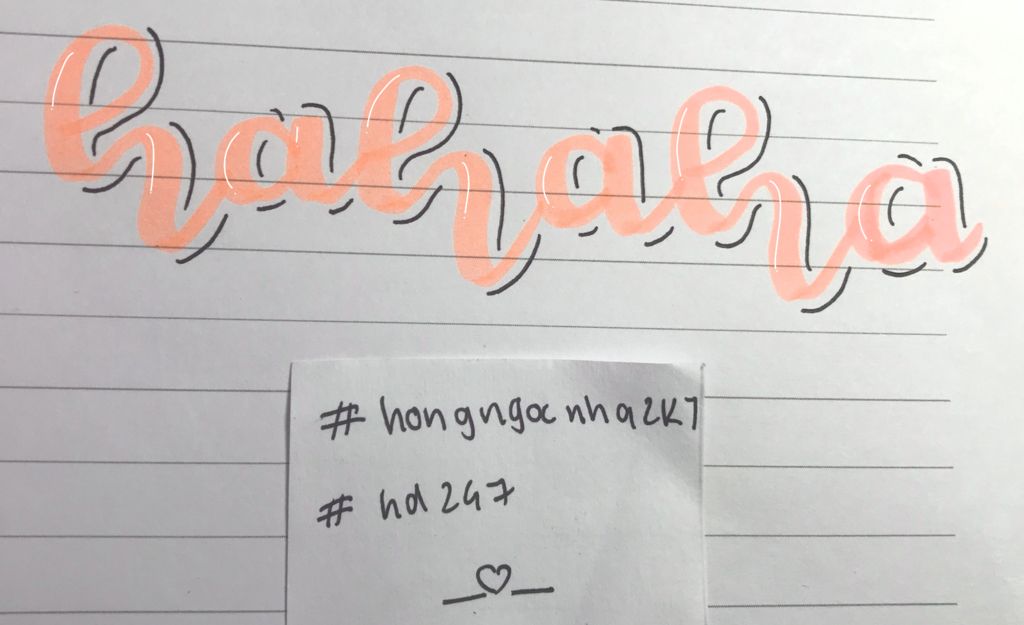 hahaha
#hongngocnha2k7
#hd247